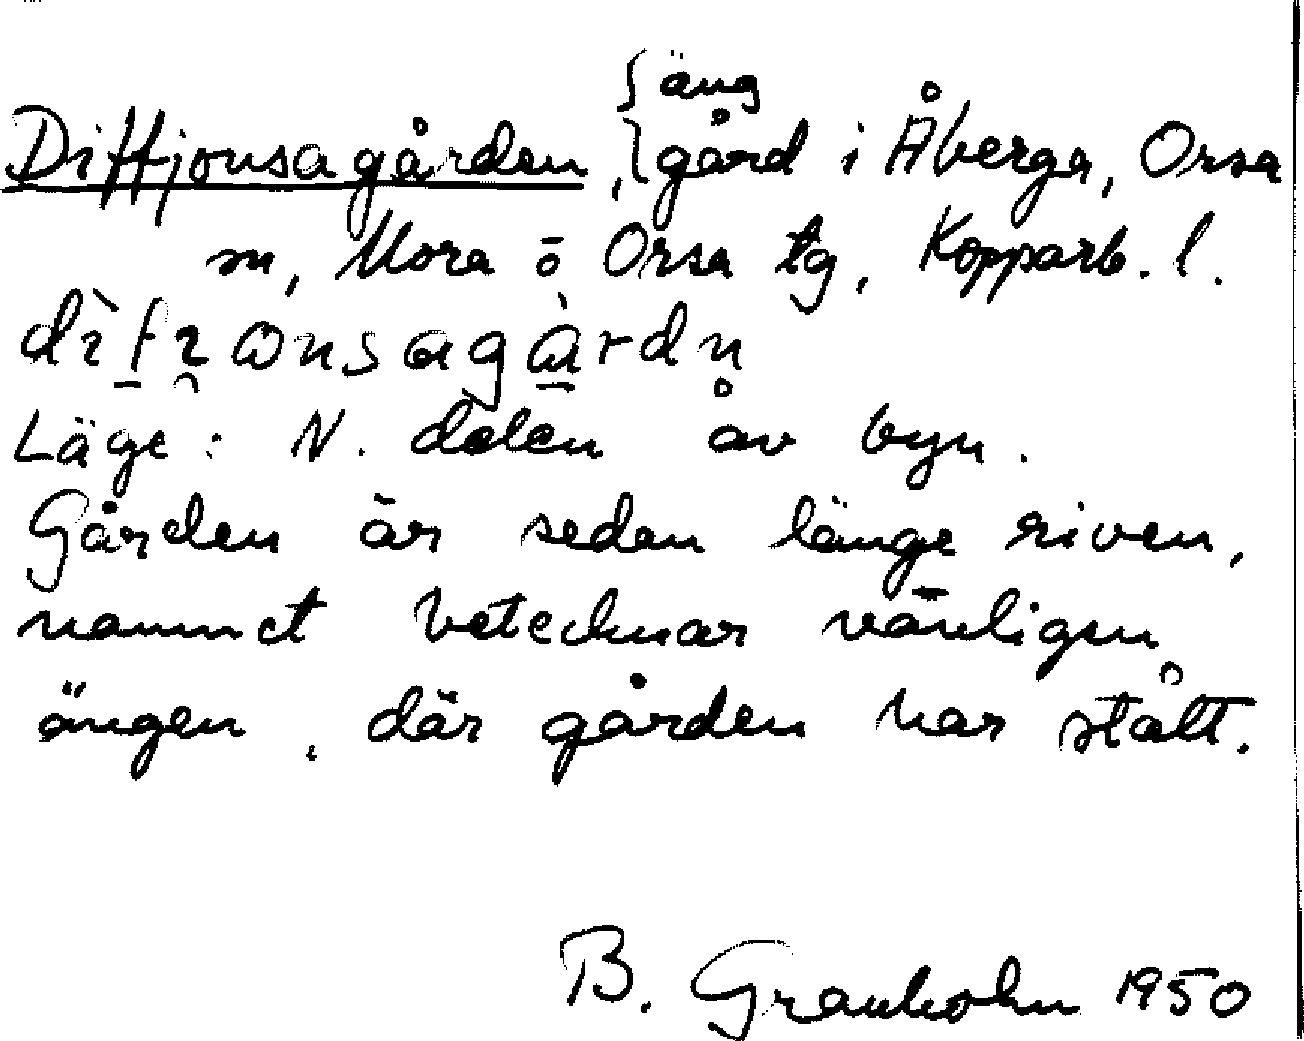 äng
Diffjonsagården, gård i Åberga, Orsa
sn, Mora o Orsa tg, Kopparb. l.
Läge: N. delen av byn.
Gården är sedan länge riven,
namnet betecknar vanligen
ängen, där gården har stått.
B. Granholm 1950